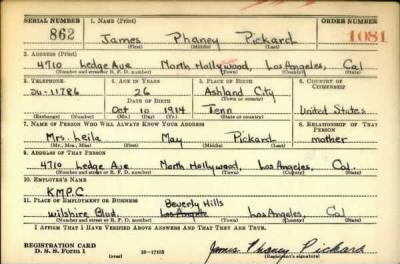 SERIAL NUMBER 1. NAME (Print) ORDER NUMBER
862 James Phaney Pickard 1081
(First) (Middle) (Last)
2. ADDRESS (Print)
4710 Ledge Ave North Hollywood, Los Angeles, Cal
(Number and street or R. F. D. number) (Town) (County) (State)
3. TELEPHONE 4. AGE IN YEARS 5. PLACE OF BIRTH 6. COUNTRY OF CITIZENSHIP
SU-11786 26 Ashland City
DATE OF BIRTH (Town or county)
Oct 10 1914 Tenn United States
(Exchange) (Number) (Mo.) (Day) (Yr.) (State or country)
7. NAME OF PERSON WHO WILL ALWAYS KNOW YOUR ADDRESS 8. RELATIONSHIP OF THAT PERSON
Mrs. Leila May Pickard mother
(Mr., Mrs., Miss) (First) (Middle) (Last)
9. ADDRESS OF THAT PERSON
4710 Ledge Ave North Hollywood, Los Angeles, Cal.
(Number and street or R. F. D. number) (Town) (County) (State)
10. EMPLOYER'S NAME
KMPC
11. PLACE OF EMPLOYMENT OR BUSINESS Beverly Hills
Wilshire Blvd. Los Angeles Los Angeles, Cal
(Number and street or R. F. D. number) (Town) (County) (State)
I AFFIRM THAT I HAVE VERIFIED ABOVE ANSWERS AND THAT THEY ARE TRUE.
REGISTRATION CARD
D. S. S. Form 1 (over) 16-17105 James Phaney Pickard
(Registrant's signature)